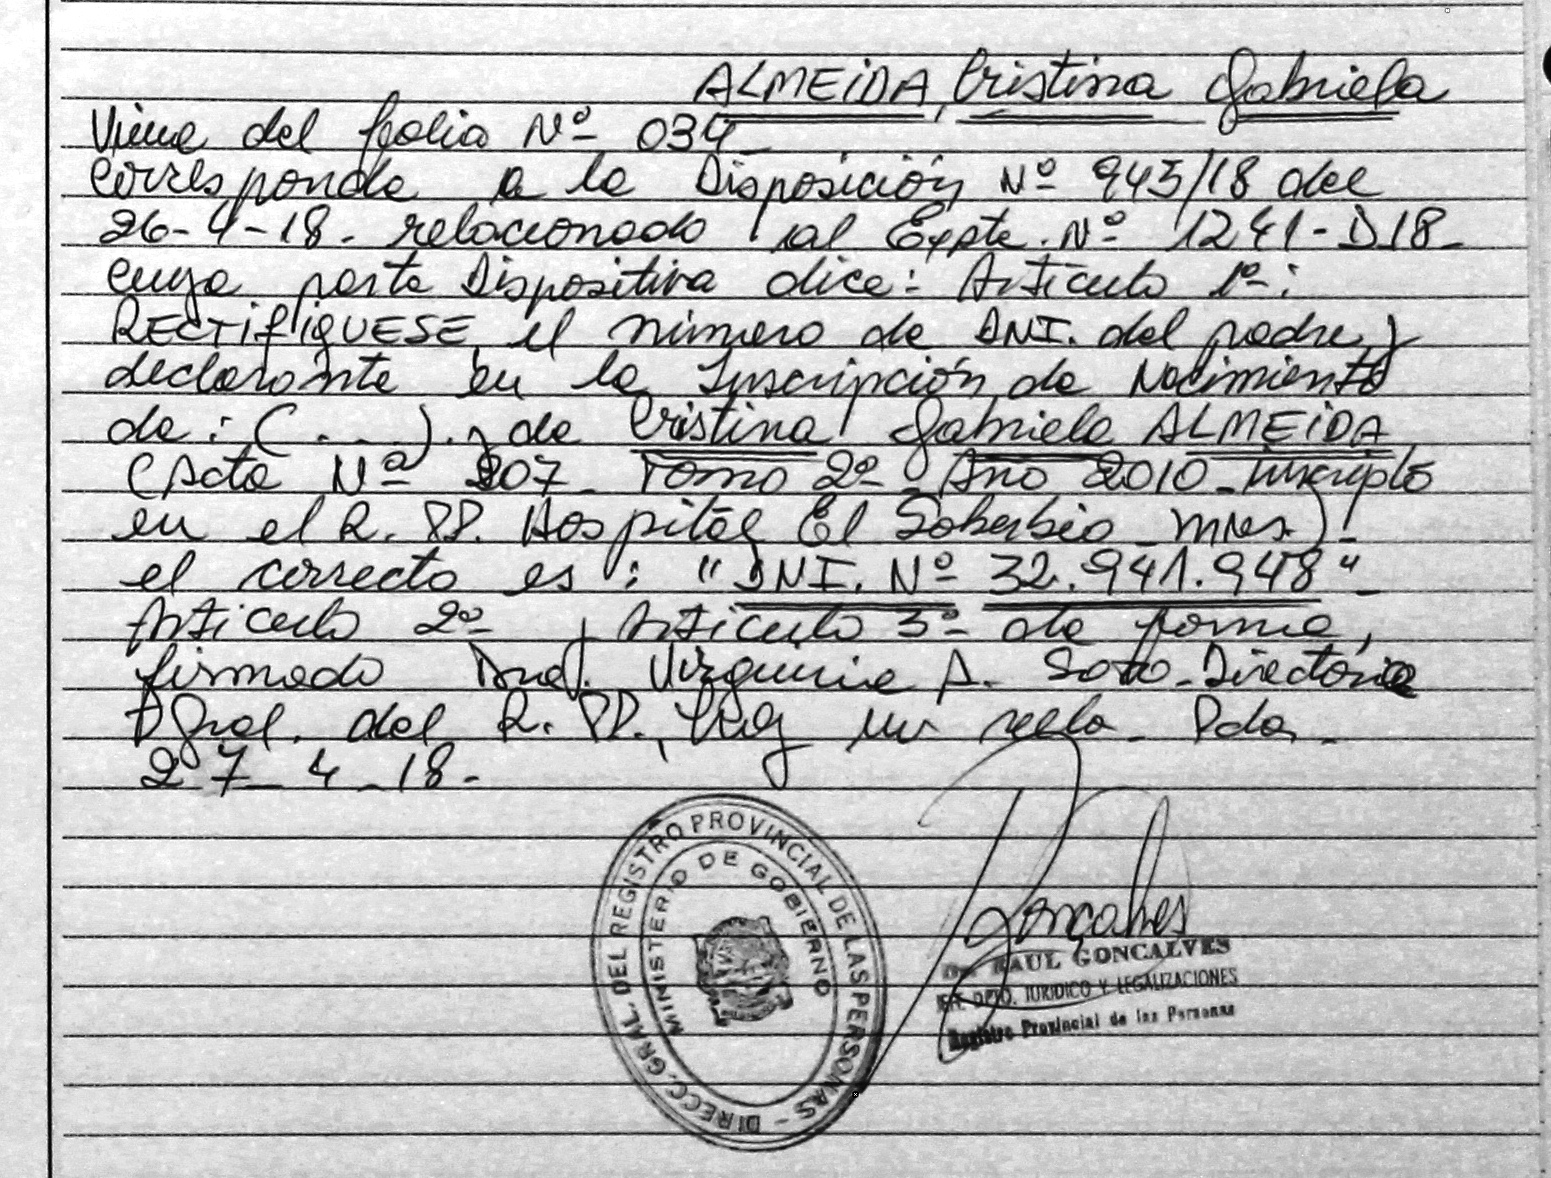 ALMEIDA, Cristina Gabriela
Viene del folio Nº 034
corresponde a la Disposición Nº 943/18 del
26-4-18. relacionado al Expte. Nº 1241-D18-
cuya parte Dispositiva dice: Artículo 1º:
RECTIFIQUESE el número de DNI. del padre y
declarante en la Inscripción de Nacimiento
de: (...). y de Cristina Gabriela ALMEIDA
(Acta Nº 207 - Tomo 2º - Año 2010 - inscripto
en el R. PP. Hospital El Soberbio - Mnes) -
el correcto es: "DNI. Nº 32.941.948" -
Artículo 2º y Artículo 3º de forma,
firmado Virginia A. Soto - Directora
Gral. del R. PP., Hay un sello - Pdas -
27-4-18-
DIRECC. GRAL. DEL REGISTRO PROVINCIAL DE LAS PERSONAS -
MINISTERIO DE GOBIERNO
Goncalves
RAUL GONCALVES
DPTO. JURIDICO Y LEGALIZACIONES
Registro Provincial de las Personas